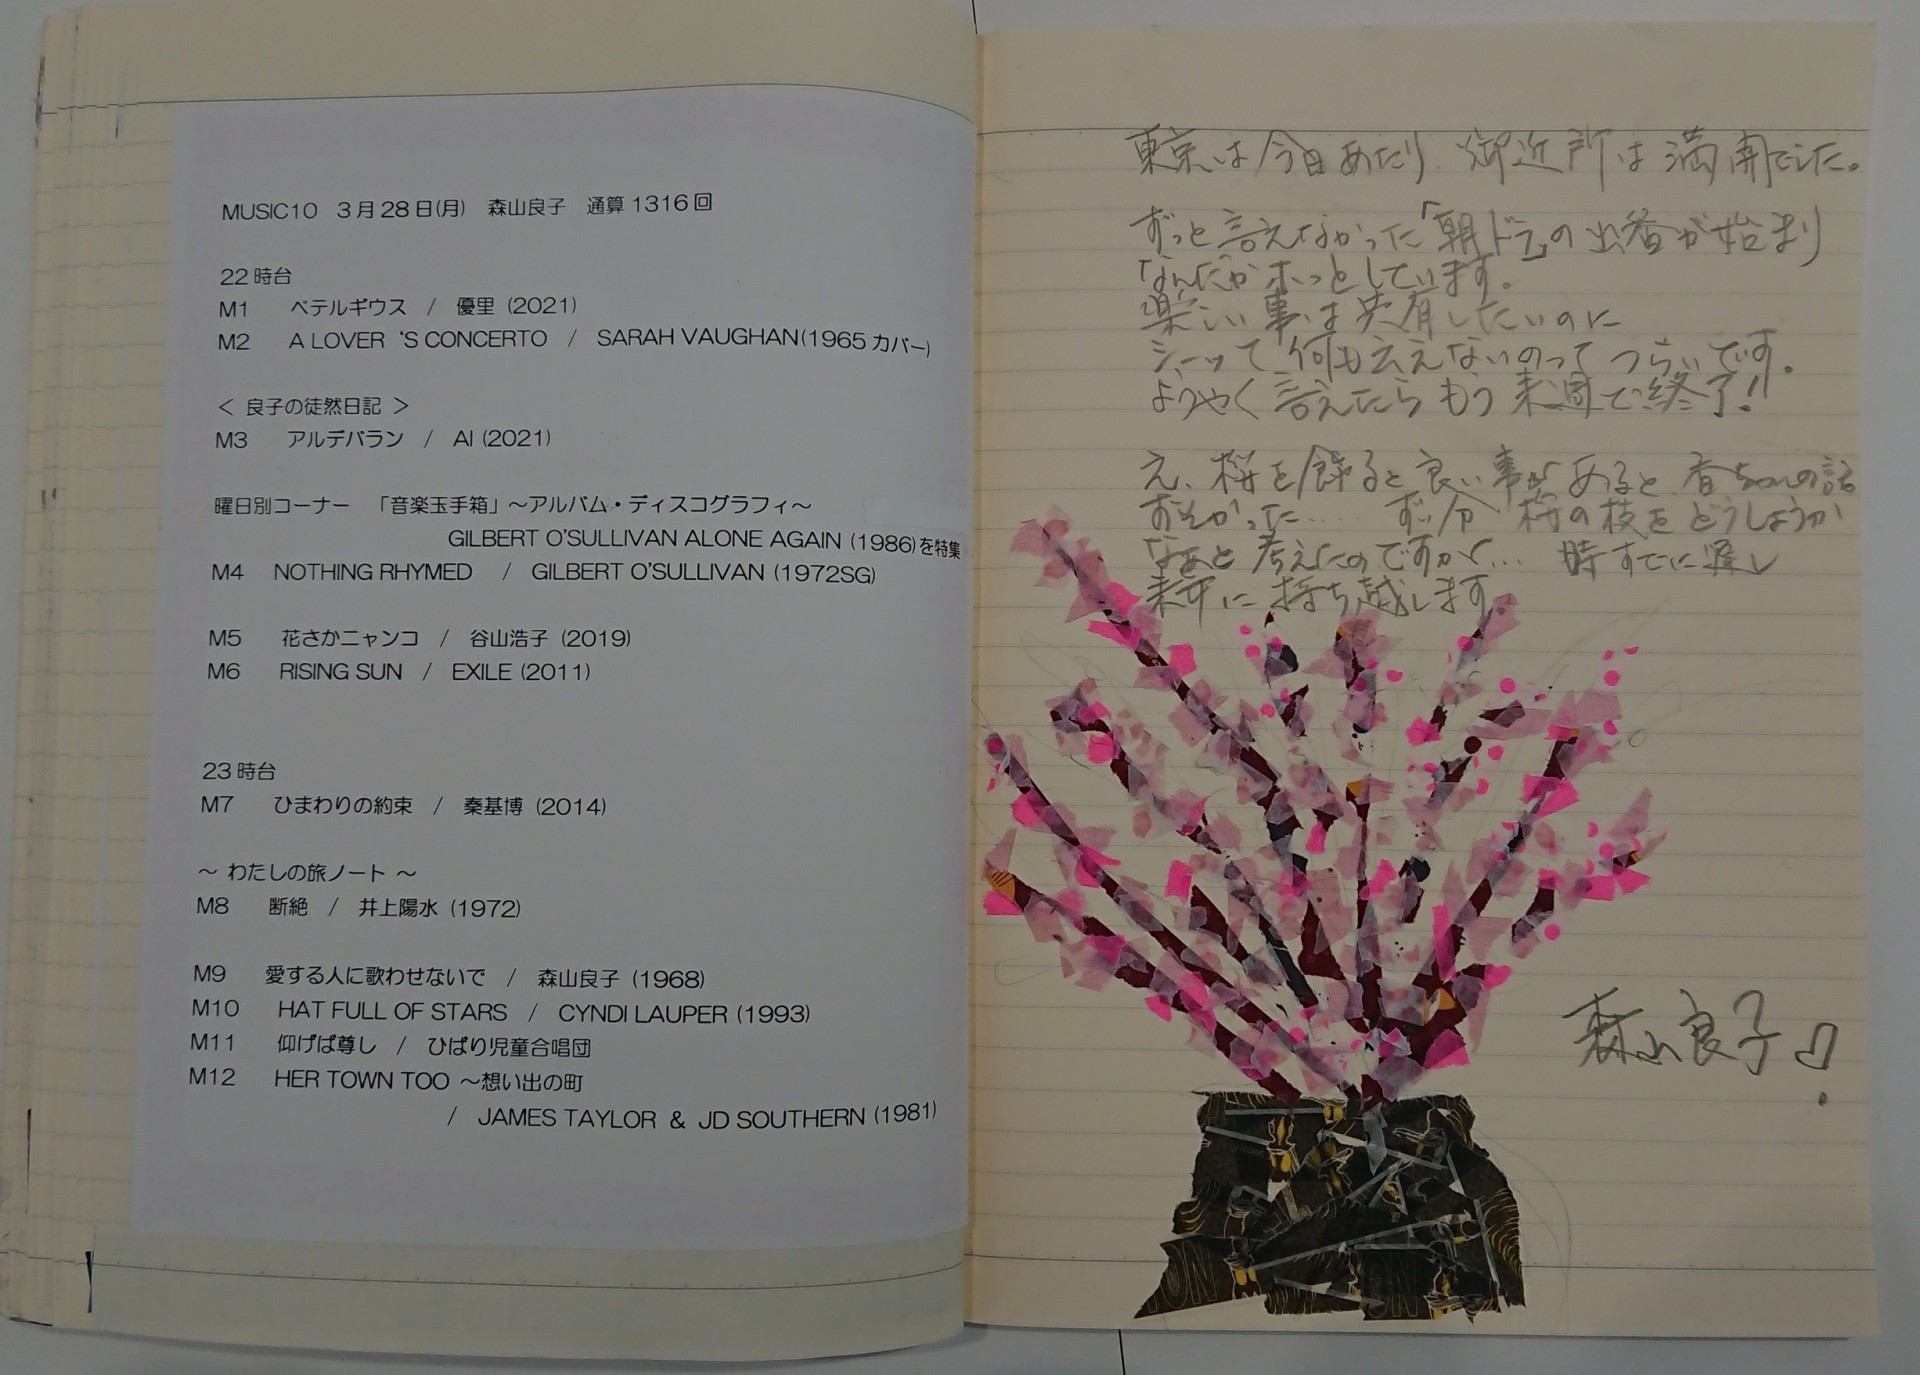 MUSIC10 3月28日(月) 森山良子 通算1316回
22時台
M1 ベテルギウス / 優里 (2021)
M2 A LOVER ‘S CONCERTO / SARAH VAUGHAN(1965カバー)
< 良子の徒然日記 >
M3 アルデバラン / AI (2021)
曜日別コーナー 「音楽玉手箱」～アルバム・ディスコグラフィ～
GILBERT O’SULLIVAN ALONE AGAIN (1986)を特集
M4 NOTHING RHYMED / GILBERT O’SULLIVAN (1972SG)
M5 花さかニャンコ / 谷山浩子 (2019)
M6 RISING SUN / EXILE (2011)
23時台
M7 ひまわりの約束 / 秦基博 (2014)
～ わたしの旅ノート ～
M8 断絶 / 井上陽水 (1972)
M9 愛する人に歌わせないで / 森山良子 (1968)
M10 HAT FULL OF STARS / CYNDI LAUPER (1993)
M11 仰げば尊し / ひばり児童合唱団
M12 HER TOWN TOO ～想い出の町
/ JAMES TAYLOR & JD SOUTHERN (1981)
東京は今日あたり、御近所は満開でした。
ずっと言えなかった「朝ドラ」の出番が始まり
なんだかホっとしています。
楽しい事は共有したいのに
シーッて何も云えないのってつらいです。
ようやく言えたらもう来週で終了!!
え、桜を飾ると良い事があると、香ちゃんの話
おそかった… ずい分 桜の枝をどうしようか
なぁと考えたのですが… 時すでに遅し
来年に持ち越します。
森山良子